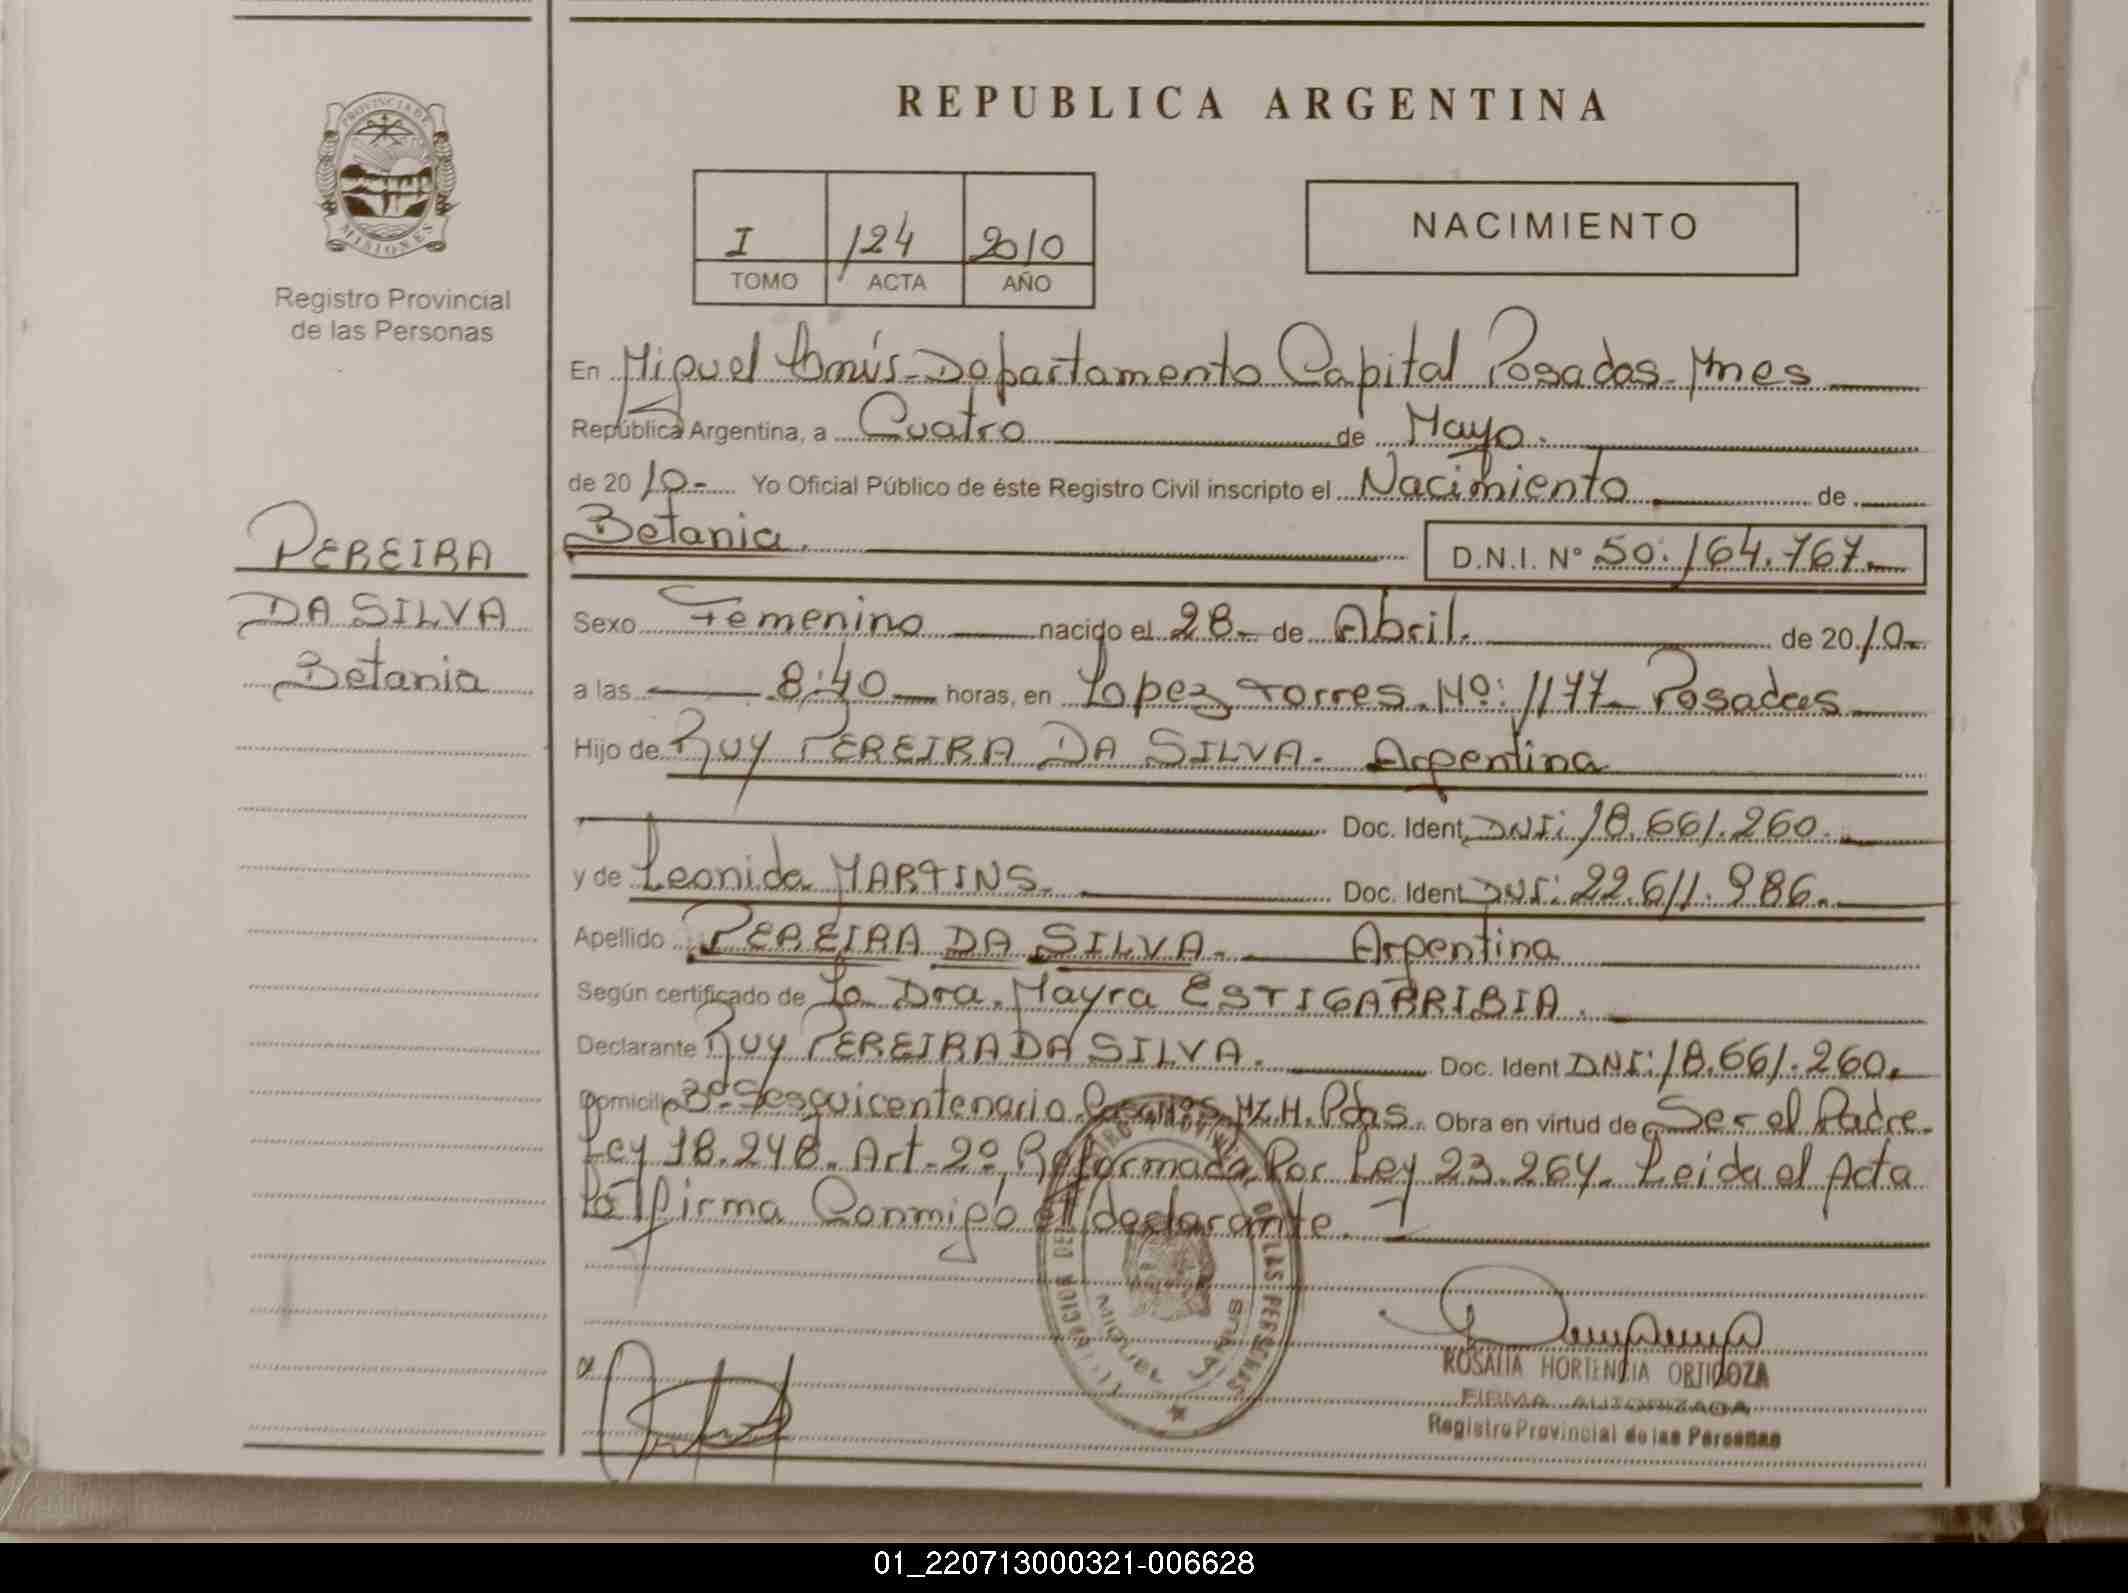 REPUBLICA ARGENTINA
PROVINCIA DE
MISIONES
Registro Provincial
de las Personas
I 124 2010
TOMO ACTA AÑO
NACIMIENTO
PEREIRA
DA SILVA
Betania
En Miguel Lanús - Departamento Capital Posadas - Mnes
República Argentina, a Cuatro de Mayo.
de 2010.- Yo Oficial Público de éste Registro Civil inscripto el Nacimiento de
Betania. D.N.I. Nº 50.164.767.-
Sexo Femenino nacido el 28.- de Abril. de 2010.-
a las 8:40 horas, en Lopez Torres. Nº: 1177- Posadas
Hijo de Ruy PEREIRA DA SILVA. Argentina
Doc. Ident. DNI: 18.661.260.
y de Leonida MARTINS. Doc. Ident. DNI: 22.611.986.
Apellido PEREIRA DA SILVA. Argentina
Según certificado de La Dra. Mayra ESTIGARRIBIA.
Declarante Ruy PEREIRA DA SILVA. Doc. Ident DNI: 18.661.260.
Domicilio Bº Sesquicentenario. Mz. H. Pdas. Obra en virtud de Ser el Padre.
Ley 18.248. Art. 2º, Reformada Por Ley 23.264. Leida el Acta
la firma Conmigo el declarante.
DE LAS PERSONAS
MIGUEL
ROSALIA HORTENCIA ORTIGOZA
FIRMA AUTORIZADA
Registro Provincial de las Personas
01_220713000321-006628